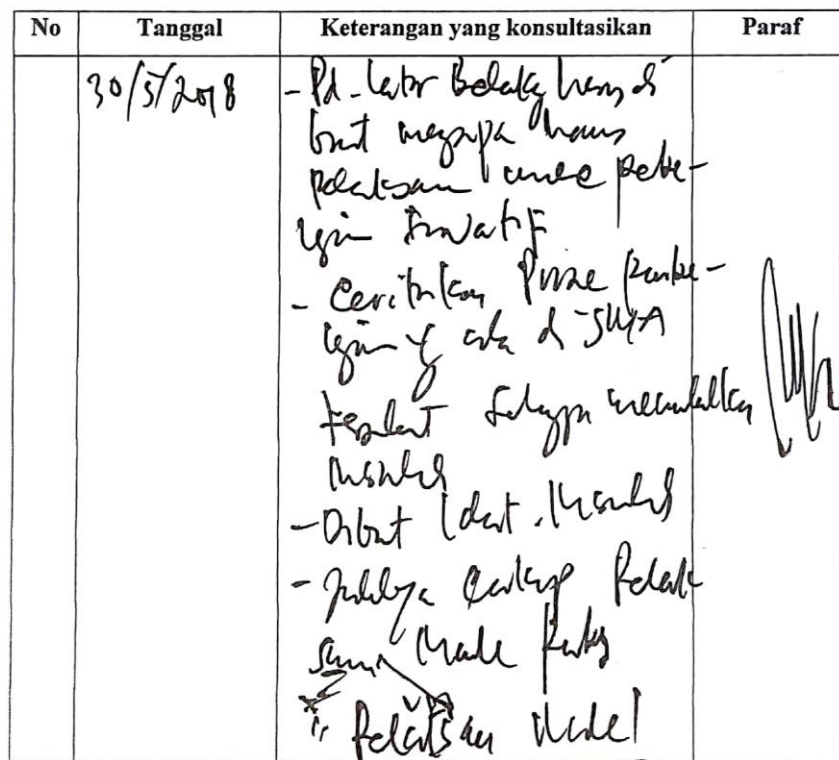 No Tanggal Keterangan yang konsultasikan Paraf
30/5/2018
- Pd. Latar Belakang harus di
buat mengapa harus
pelaksanaan model pembe-
inovatif
- Ceritakan
ada di SMA
tersebut Sehingga memunculkan
masalah
- Dibuat Ident. Masalah
- Judulnya cukup Pelak
Model
Pelaksanaan Model